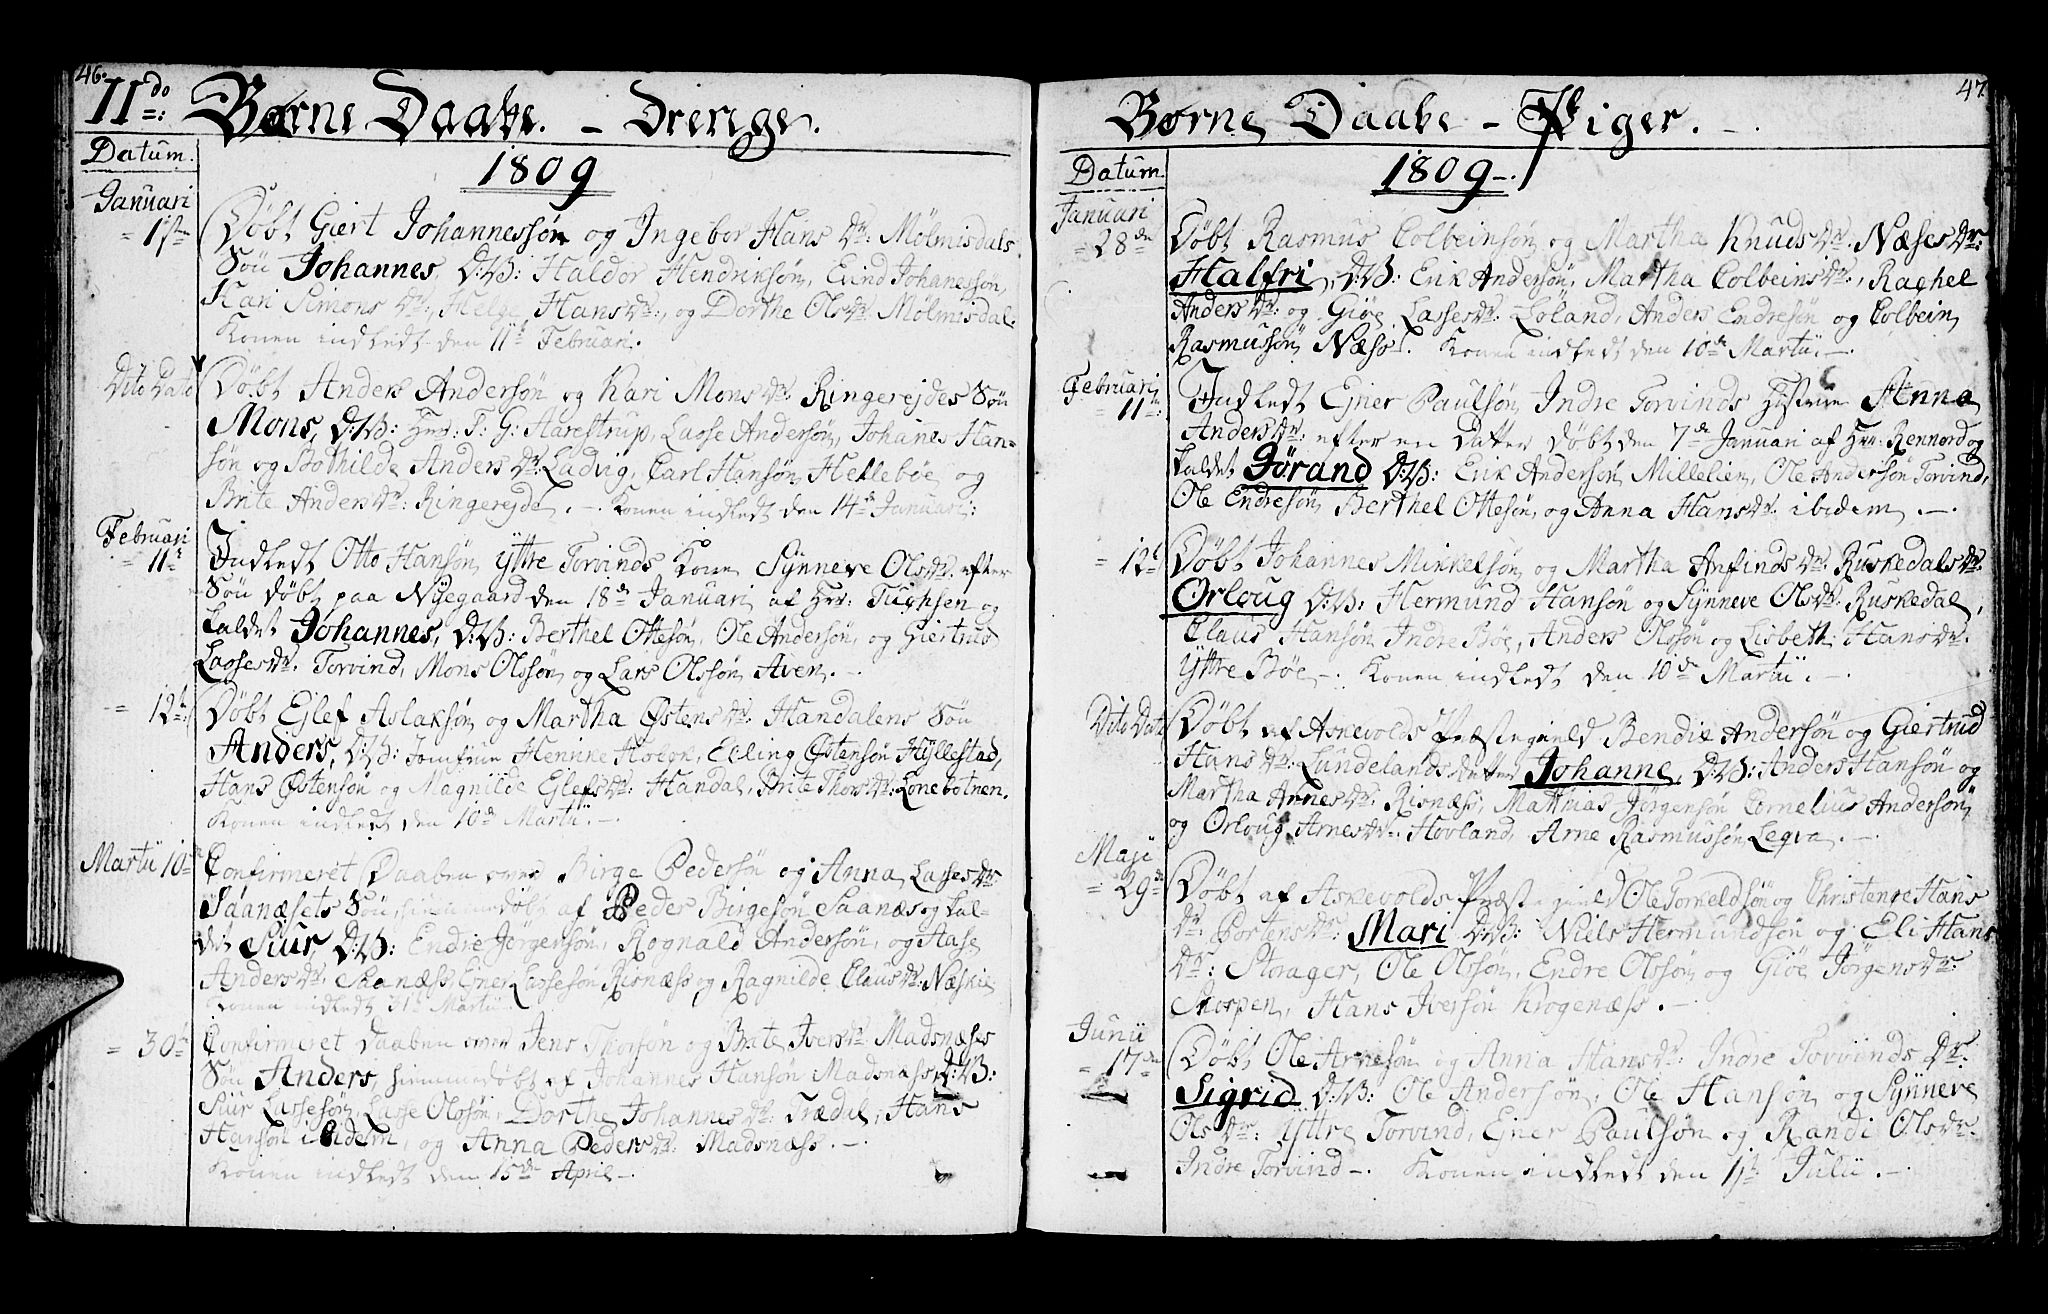 46.
II do: Børne Daabe. - Drenge.
Datum.
1809
Januari
= 1ste
Døbt Giert Johannessøn og Ingebor Hans Dr: Mölmisdals
Søn Johannes, D:B: Haldor Hendriksøn, Eivind Johannessøn,
Kari Simons Dr:, Helge Hans Dr:, og Dorthe Ols Dr: Mölmisdal.
Konen indledt den 11te Februari.
Dito Dato
Døbt Anders Andersøn og Kari Mons Dr: Ringerejdes Søn
Mons, D:B: Hrr: F: G: Aarestrup, Lasse Andersøn, Johanes Han-
søn og Bothilde Anders Dr: Ladvig, Carl Hansøn Hellebøe og
Brite Anders Dr: Ringerejde. - Konen indledt den 14de Januari:
Februari
= 11te
Indledt Otto Hansøn Yttre Torvinds Kone Synneve Ols Dr: efter
Søn døbt paa Nyegaard den 18de Januari af Hrr: Tuchsen og
kaldet Johannes, D:B: Berthel Ottesøn, Ole Andersøn, og Giertrud
Lasses Dr: Torvind, Mons Olssøn og Lars Olssøn Aven. -
= 12te
Døbt Ejlef Aslaksøn og Martha Østens Dr: Handalens Søn
Anders, D:B: Jomfrue Henrike Holck, Elling Østensøn Hyllestad,
Hans Østensøn og Magnilde Ejlefs Dr: Handal, Brite Thors Dr: Lonebotnen.
Konen indledt den 10de Martii. -
Martii 10de
Confirmeret Daaben over Birge Pedersøn og Anna Lasses Dr:
Saanæsets Søn, hiemmedøbt af Peder Birgesøn Saanæs og kal-
det Siur, D:B: Endre Jørgensøn, Rognald Andersøn, og Aase
Anders Dr: Skanæss, Ener Lassesøn Risnæss og Ragnilde Claus Dr: Næskie
Konen indledt 31te Martii
= 30te
Confirmeret Daaben over Jens Thorsøn og Brite Ivers Dr: Madsnæses
Søn Anders, hiemmedøbt af Johannes Hansøn Madsnæss D:B:
Siur Lassesøn, Lasse Olssøn, Dorthe Johannes Dr: Trædal, Hans
Hansøn ibidem, og Anna Peders Dr: Madsnæss. -
Konen indledt den 15de April -
47.
Børne Daabe - Piger. -
Datum.
1809 -
Januari
= 28de
Døbt Rasmus Colbeinsøn og Martha Knuds Dr. Næses Dr:
Halfri, D:B: Erik Andersøn, Martha Colbeins Dr:, Rachel
Anders Dr: og Giøe Lasses Dr: Løland, Anders Endresøn og Colbein
Rasmussøn Næss. Konen indledt den 10de Martii. -
Februari
= 11te:
Indledt Ejner Paulsøn Indre Torvinds Hustrue Anna
Anders Dr: efter en Datter døbt den 7de Januari af Hrr: Rennord og
kaldet Jørand D:B: Erik Andersøn Millelien, Ole Andersøn Torvind,
Ole Endresøn, Berthel Ottesøn, og Anna Hans Dr. ibidem. -
= 12te
Døbt Johannes Mikkelsøn og Martha Anfinds Dr. Ruskedals Dr:
Orloug D:B: Hermund Hansøn og Synneve Ols Dr. Ruskedal,
Claus Hansøn Indre Bøe, Anders Olssøn og Lisbeth Hans Dr.
Yttre Bøe -. Konen indledt den 10de Martii. -
Dito Dato
Døbt af Askevolds Præstegield Bendix Andersøn og Giertrud
Hans Dr: Lundelands Datter Johanne, D:B: Anders Hansøn og
Martha Arnes Dr: Risnæss, Matthias Jørgensøn Cornelius Andersøn
og Orloug Arnes Dr: Hovland, Arne Rasmussøn Legva. -
Maji
= 29de
Døbt af Askevolds Præstegield Ole Torkeldsøn og Christense Hans
Dr: Portens Dr: Mari D:B: Niels Hermundsøn og Eli Hans
Dr: Storager, Ole Olssøn, Endre Olssøn og Giøe Jørgens Dr:
Skorpen, Hans Iversøn Krogenæss. -
Junii
= 17de
Døbt Ole Arnesøn og Anna Hans Dr: Indre Torvinds Dr.
Sigrid D:B: Ole Andersøn, Ole Hansøn og Synneve
Ols Dr: Yttre Torvind, Ejner Paulsøn og Randi Ols Dr.
Indre Torvind -. Konen indledt den 1ste Julii. -